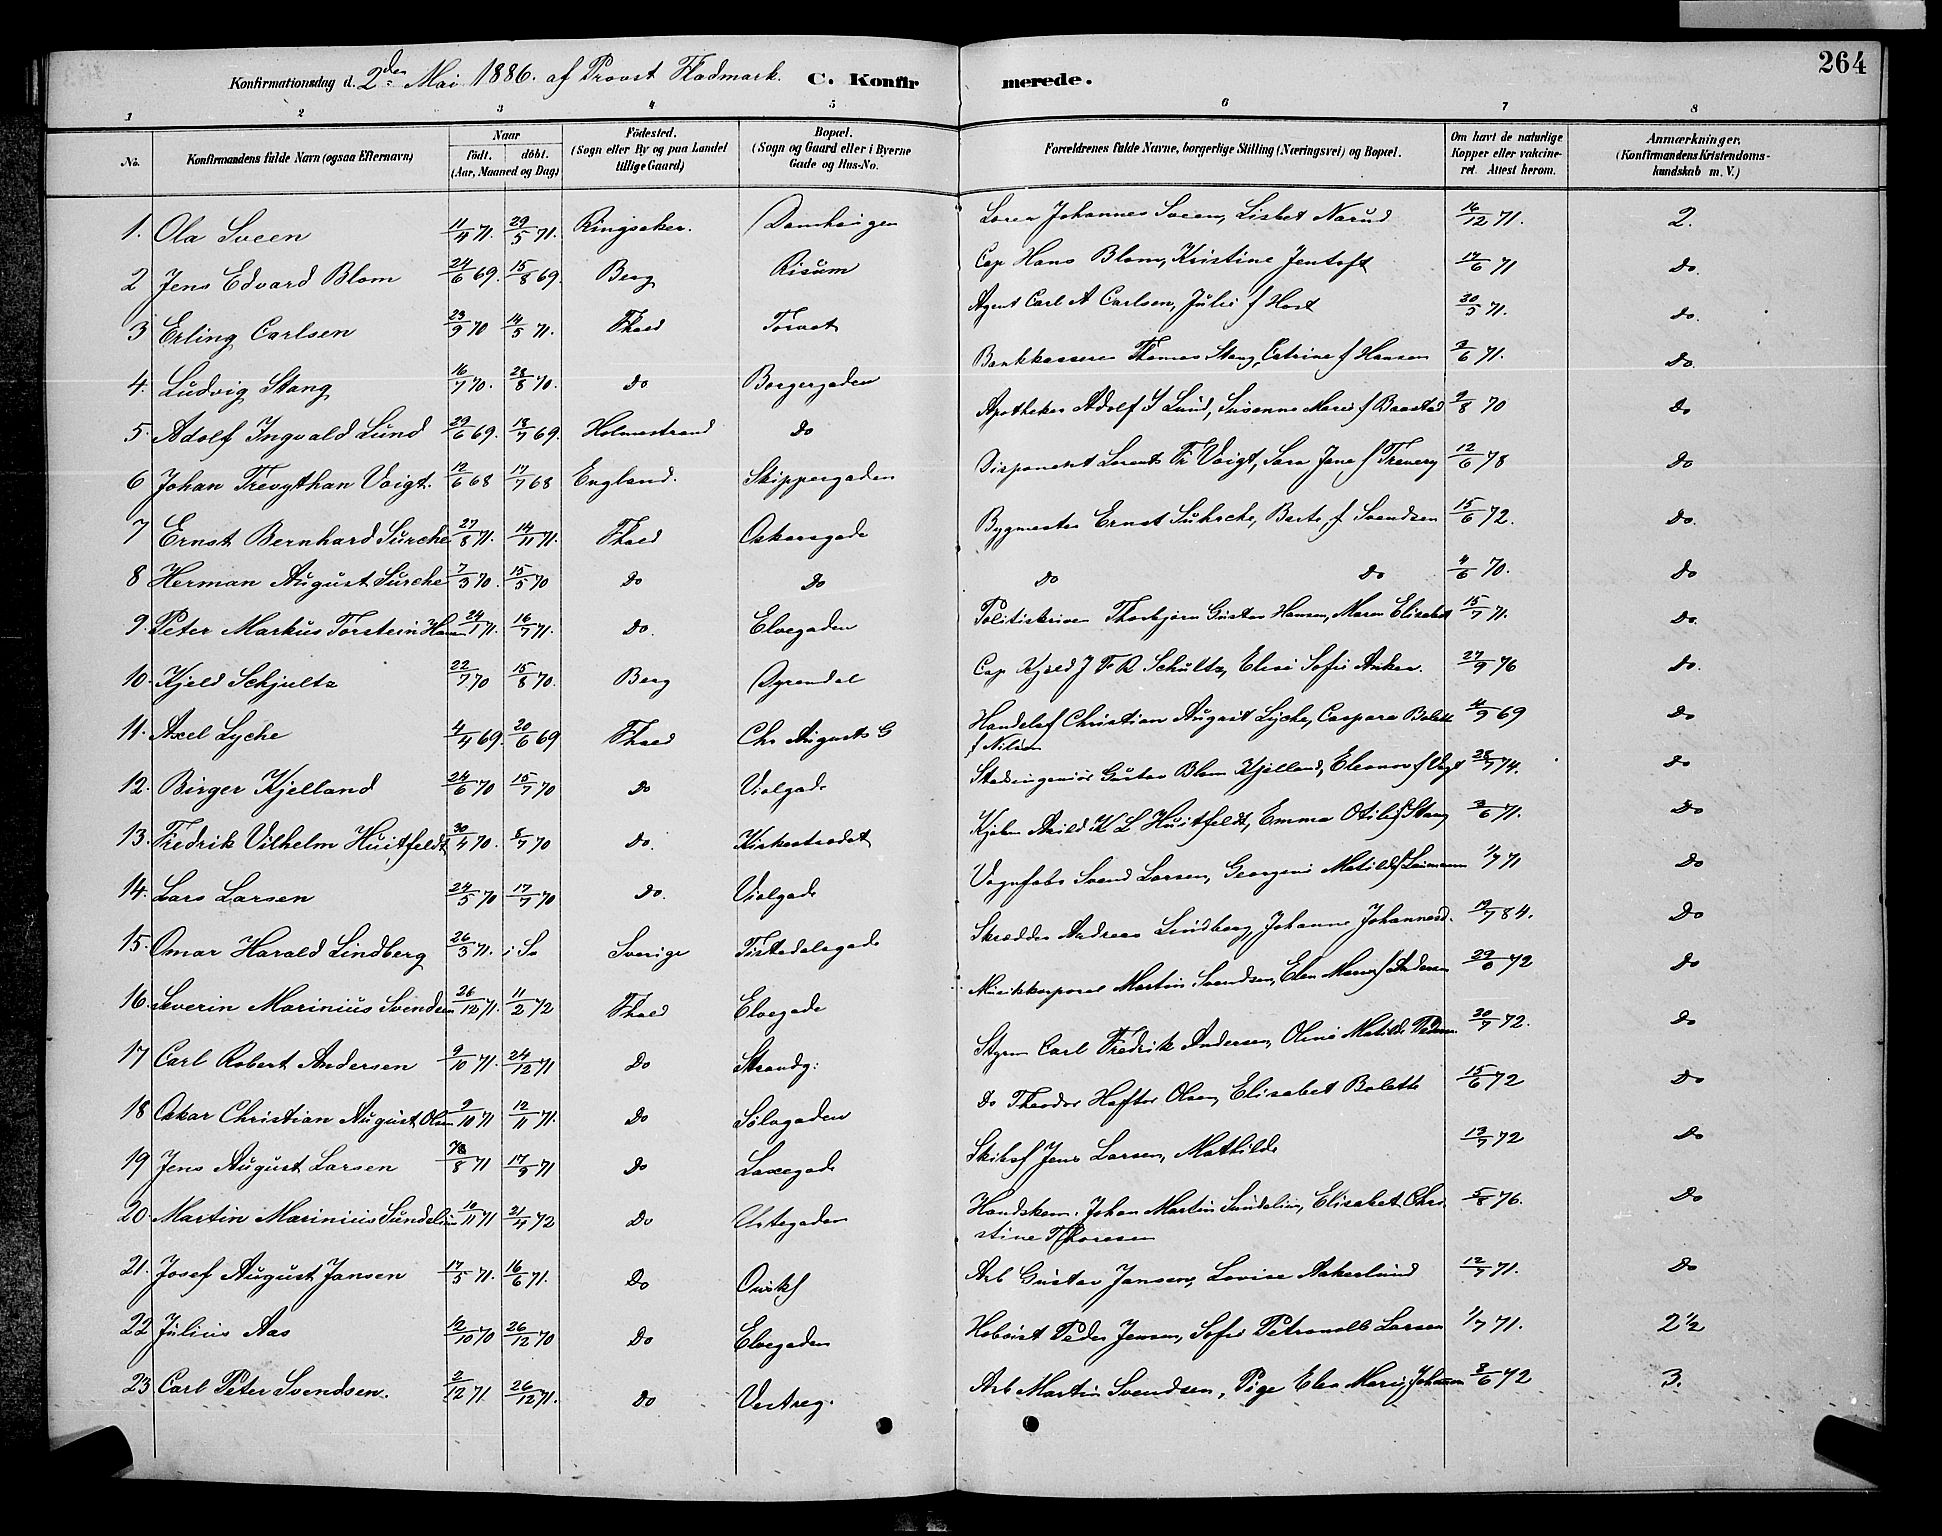 264
Konfirmationsdag d. 2den Mai 1886. af Provst Fladmark. C. Konfirmerede.
1 2 3 4 5 6 7 8
No. Konfirmandens fulde Navn (ogsaa Efternavn) Naar født. døbt. (Aar, Maaned og Dag) Fødested. (Sogn eller By og paa Landet tillige Gaard) Bopæl. (Sogn og Gaard eller i Byerne Gade og Hus-No. Forældrenes fulde Navne, borgerlige Stilling (Næringsvei) og Bopæl. Om havt de naturlige Kopper eller vakcineret. Attest herom. Anmærkninger. (Konfirmandens Kristendomskundskab m. V.)
1. Ola Sveen 11/4 71. 29/5 71. Ringsaker. Damhaugen Johannes Sveen, Lisbet Narud 16/12 71. 2.
2 Jens Edvard Blom 24/6 69. 15/8 69. Berg Risum Cap Hans Blom, Kristine Jentoft 17/6 71 do.
3 Erling Carlsen 23/9 70 14/5 71. Fhald Torvet Agent Carl A Carlsen, Julie f Host 30/5 71. do.
4. Ludvig Stang 16/7 70. 28/8 70. do Borgergaden Bankkasserer Thomas Stang, Catrine f Hansen 3/6 71. do.
5. Adolf Ingvald Lund 29/6 69. 18/7 69. Holmestrand do Apotheker Adolf S Lund, Susanne Marie f Baastad 2/8 70 do
6 Johan Trevythan Voigt. 12/6 68 17/7 68 England. Skippergaden Disponent Lorents Fr Voigt, Sara Jane f Trevery 12/6 78 do
7 Ernst Bernhard Surche 27/8 71. 14/11 71. Fhald Oskarsgade Bygmester Ernst Suhrche, Berte f Svendsen 15/6 72. do.
8 Herman August Surche 7/3 70. 15/5 70 do do do do 4/6 70. do
9. Peter Markus Torstein Han 24/1 71. 16/7 71. do. Elvegaden Politiskriver Thorbjørn Gustav Hansen, Maren Elisabet 15/7 71. do.
10. Kjeld Schjultz 22/7 70 15/8 70. Berg Dyrendal Cap Kjeld J F R Schultz, Elise Sofie Anker. 27/9 76 do.
11. Axel Lyche 4/4 69. 20/6 69 Fhald Chr Augusts G Handelsf Christian August Lyche, Caspara Bolette f Nilsen 4/9 69 do
12. Birger Kjelland 24/6 70 15/7 70 do Violgade Stadsingeniør Gustav Blom Kjelland, Eleonor f Vogt 28/7 74. do
13. Fredrik Vilhelm Huitfeldt 30/4 70. 8/7 70 do. Kirkestrædet Kjøbm Arild K L Huitfeldt, Emma Otilie f Stang 3/6 71. do
14. Lars Larsen 24/5 70 17/7 70 do. Violgade Vognfabr Svend Larsen, Georgine Matilde f Leimann 1/7 71 do
15. Omar Harald Lindberg 26/3 71. i S Sverige Tistedalsgade Skrædder Andreas Lindberg, Johanne Johannesd. 19/7 84. do
16. Severin Marinius Svendsen 26/12 71. 11/2 72 Fhald Elvegade Musikkorporal Martin Svendsen, Elen Marie f Andersen 72 do
17 Carl Robert Andersen 9/10 71. 24/12 71 do Strandg. Styrm Carl Fredrik Andersen, Oline Matilde Peders 30/7 72. do
18 Oskar Christian August Olsen 9/10 71 12/11 71. do Sølvgaden do Theodor Haftor Olsen, Elisabet Bolette 15/6 72 do
19 Jens August Larsen 8 71 17/9 71 do Laxegade Skibsf Jens Larsen, Mathilde 13/7 72 do
20. Martin Marinius Sundelin 10/11 71 21/4 72 do Østegaden Handskem. Johan Martin Sundelin, Elisabet Christine Thoresen 5/8 76. do
21. Josef August Jansen 17/5 71. 16/6 71. do Arb Gustav Jansen, Lovise Aakerlund 12/7 71. do
22 Julius Aas 12/10 70 26/12 70 do Elvegaden Hoboist Peder Jensen, Sofie Petronelle Larsen 1/7 71. 2½
23 Carl Peter Svendsen. 2/12 71 26/12 71. do Vestreg. Arb Martin Svendsen, Pige Elen Marie Johann 3/6 72 3.